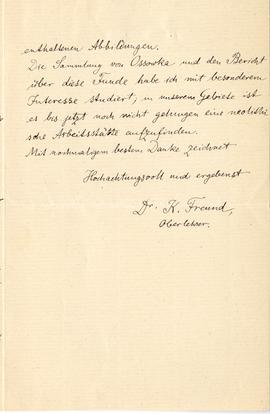 enthaltenen Abbildungen.
Die Sammlung von Ossowka und den Bericht
über diese Funde habe ich mit besonderem
Interesse studiert, in unserem Gebiete ist
es bis jetzt noch nicht gelungen eine neolithi
sche Arbeitsstätte aufzufinden.
Mit nochmaligem besten Danke zeichnet
Hochachtungsvoll und ergebenst
Dr. K. Freund,
Oberlehrer.